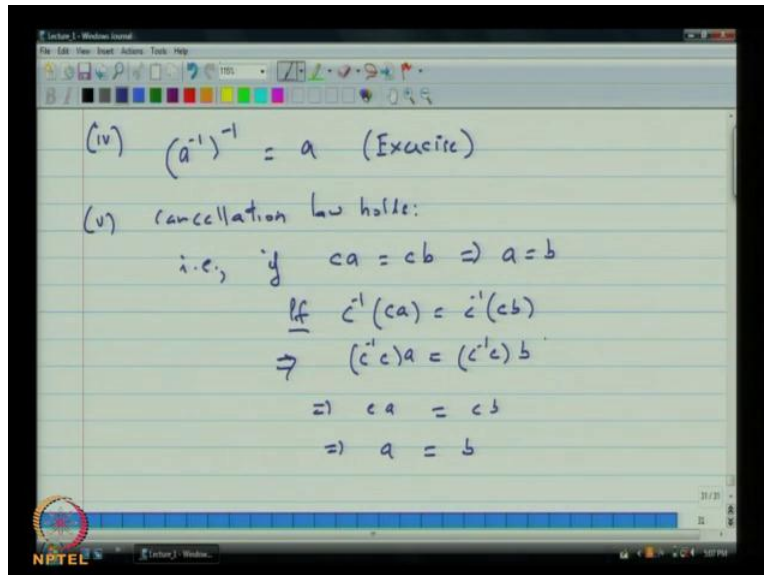 Lecture_1 - Windows Journal
File Edit View Insert Actions Tools Help
115%
B I
(iv) (a⁻¹)⁻¹ = a (Exercise)
(v) cancellation law holds:
i.e., if ca = cb => a = b
Pf c⁻¹(ca) = c⁻¹(cb)
=> (c⁻¹c)a = (c⁻¹c)b
=> ea = eb
=> a = b
31/31
NPTEL
Lecture_1 - Window...
5:07 PM